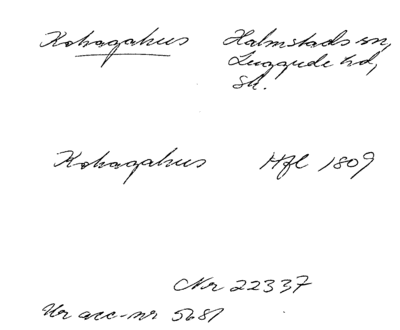 Kohagahus Halmstads sn,
Luggude hd,
Sk.
Kohagahus Hfl 1809
Nr 22337
Ur acc-nr 5681